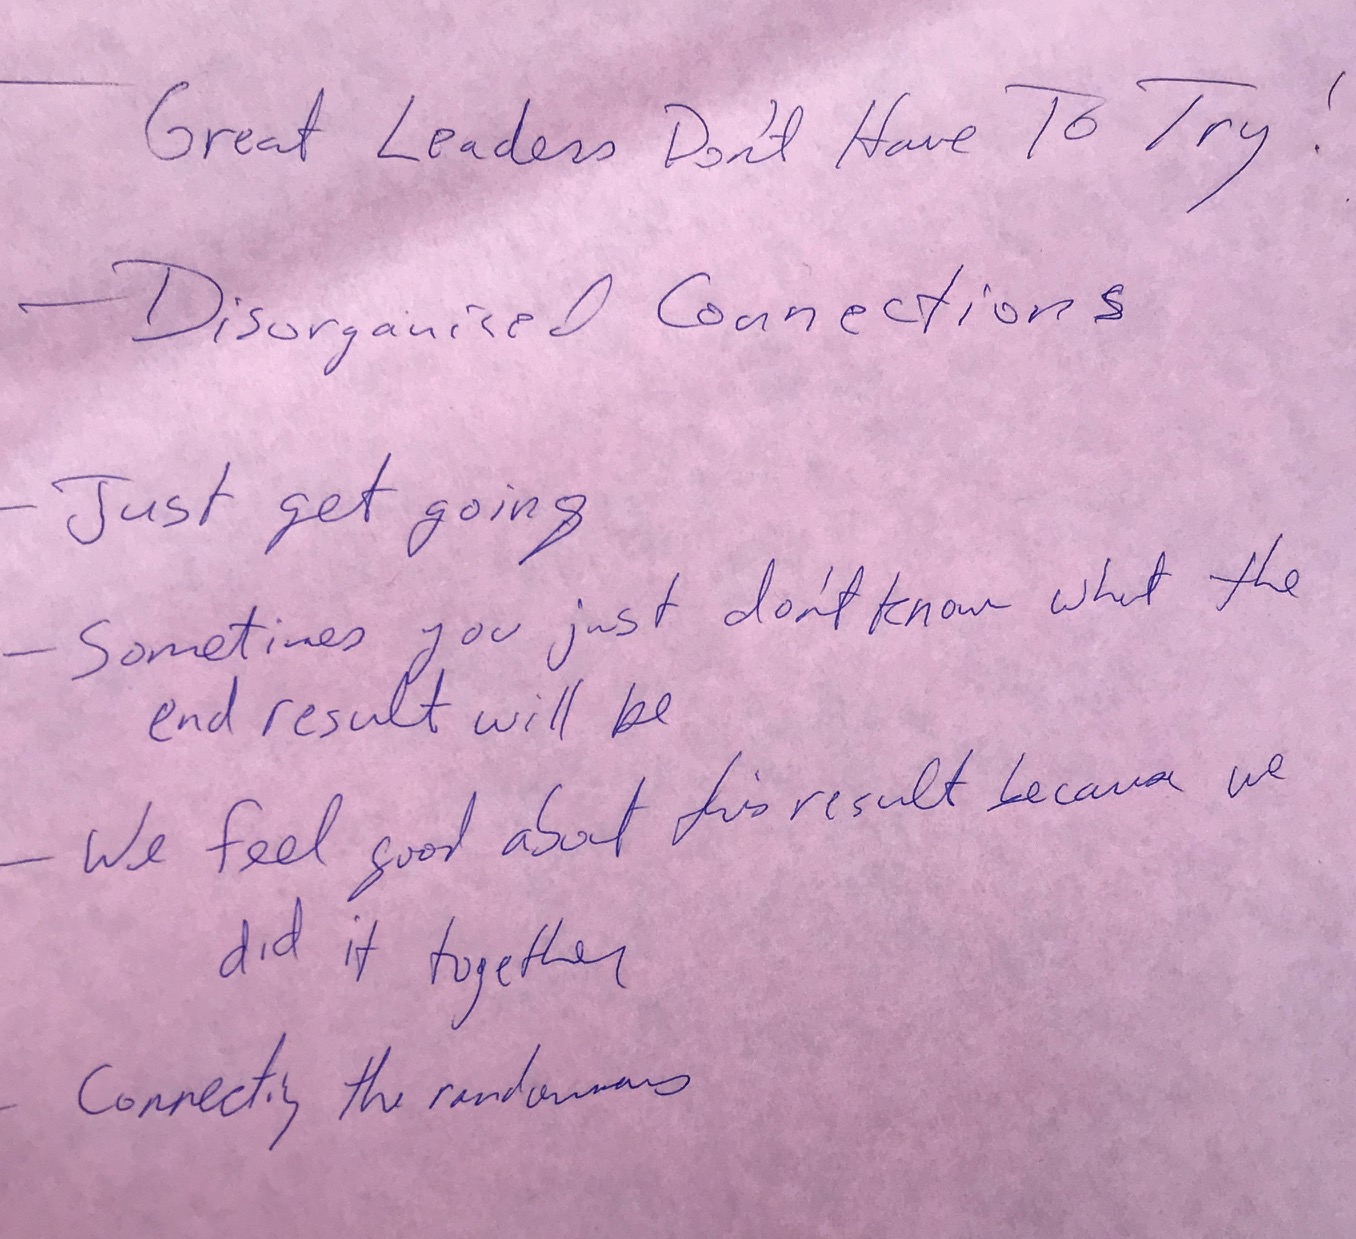 — Great Leaders Don't Have To Try!
— Disorganised Connections
- Just get going
- Sometimes you just don't know what the
end result will be
- We feel good about this result because we
did it together
- Connecting the randomness